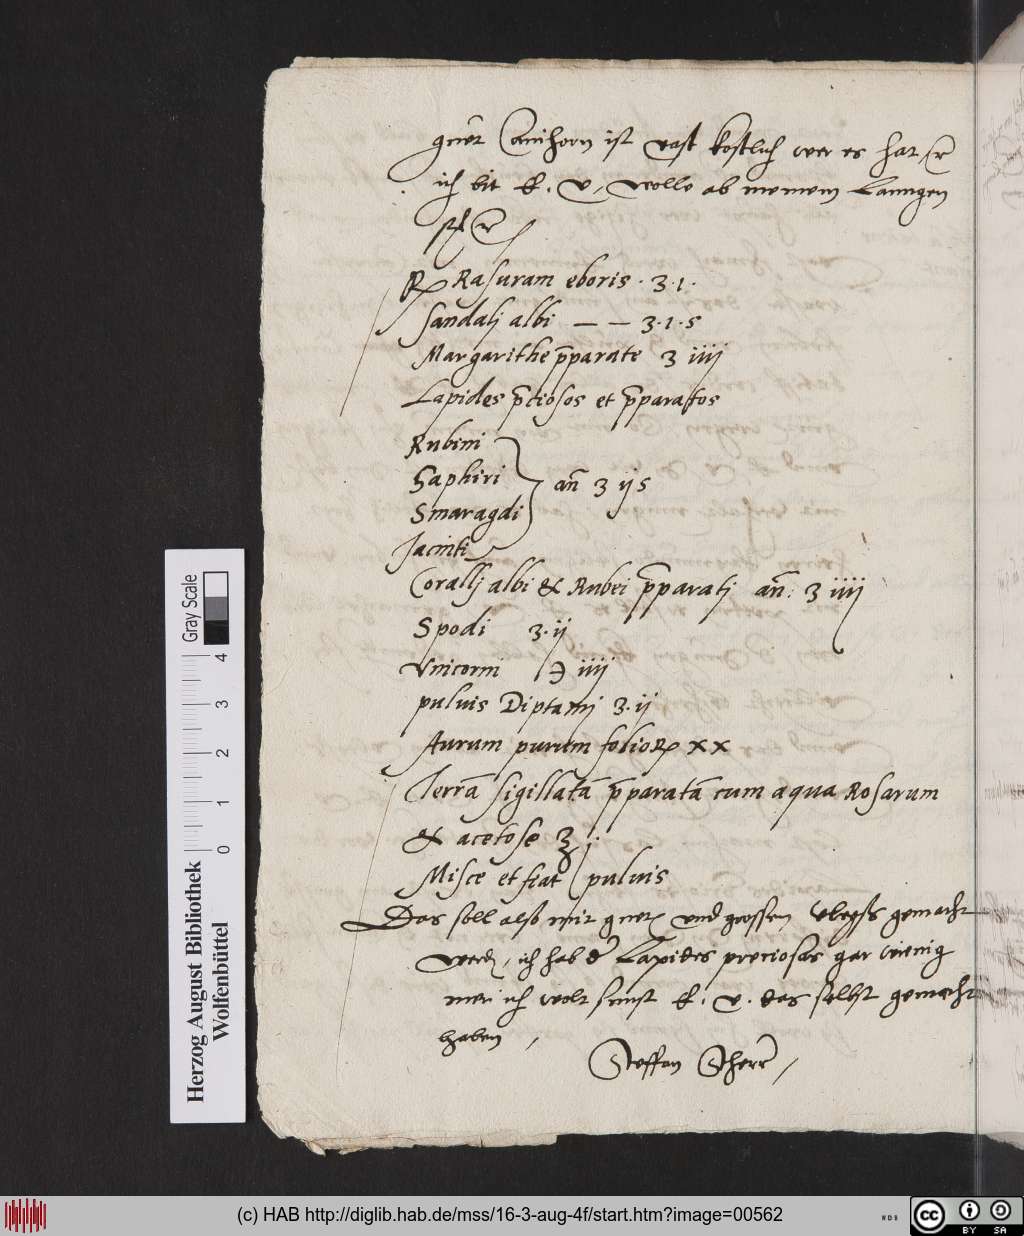 guet Ainhorn ist vast kostlich wer es hat, 
ich bit E. v. wolle ab meinem Lanngen
Rasuram eboris . ʒ . 1 .
Sandalj albi — — ʒ . 1 . s
Margarithe p̄parate ʒ iiij
Lapides p̄ciosos et p̄paratos
Rubini
Saphiri
Smaragdi
Jacinti
an̄ ʒ ij s
Corallj albi & Rubei p̄paratj an̄: ʒ iiij
Spodi ʒ . ij
Vnicorni ℈ iiij
puluis Diptamj ʒ . ij
Aurum purum folioꝝ xx
Terrā sigillatā p̄paratā cum aqua Rosarum
& acetose ℥ j.
Misce et fiat puluis
Das soll alss mit guet und grossem vleyss gemacht
werd, ich hab d Lapides preciosos gar wienig
ich wolt sunst E. v. das selbst gemacht
haben,
Steffan Scherr,
Herzog August Bibliothek
Wolfenbüttel
0 1 2 3 4
Gray Scale
(c) HAB http://diglib.hab.de/mss/16-3-aug-4f/start.htm?image=00562
WDB
cc
BY SA